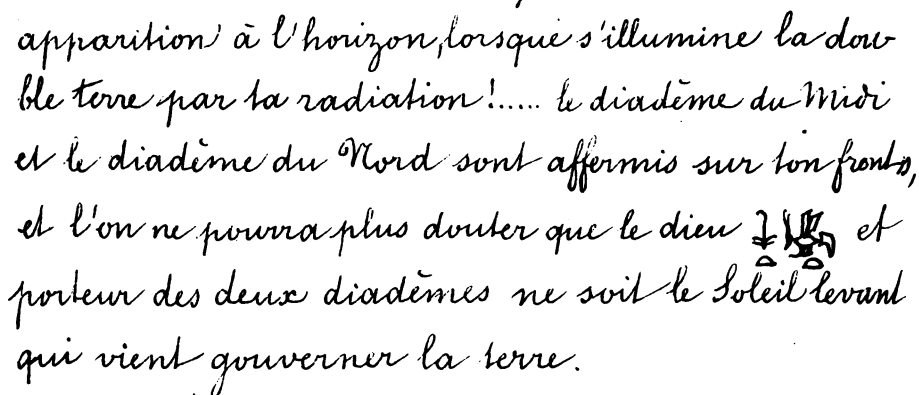 apparition à l'horizon, lorsque s'illumine la dou-
ble terre par ta radiation !..... le diadème du Midi
et le diadème du Nord sont affermis sur ton front »,
et l'on ne pourra plus douter que le dieu et
porteur des deux diadèmes ne soit le Soleil levant
qui vient gouverner la terre.